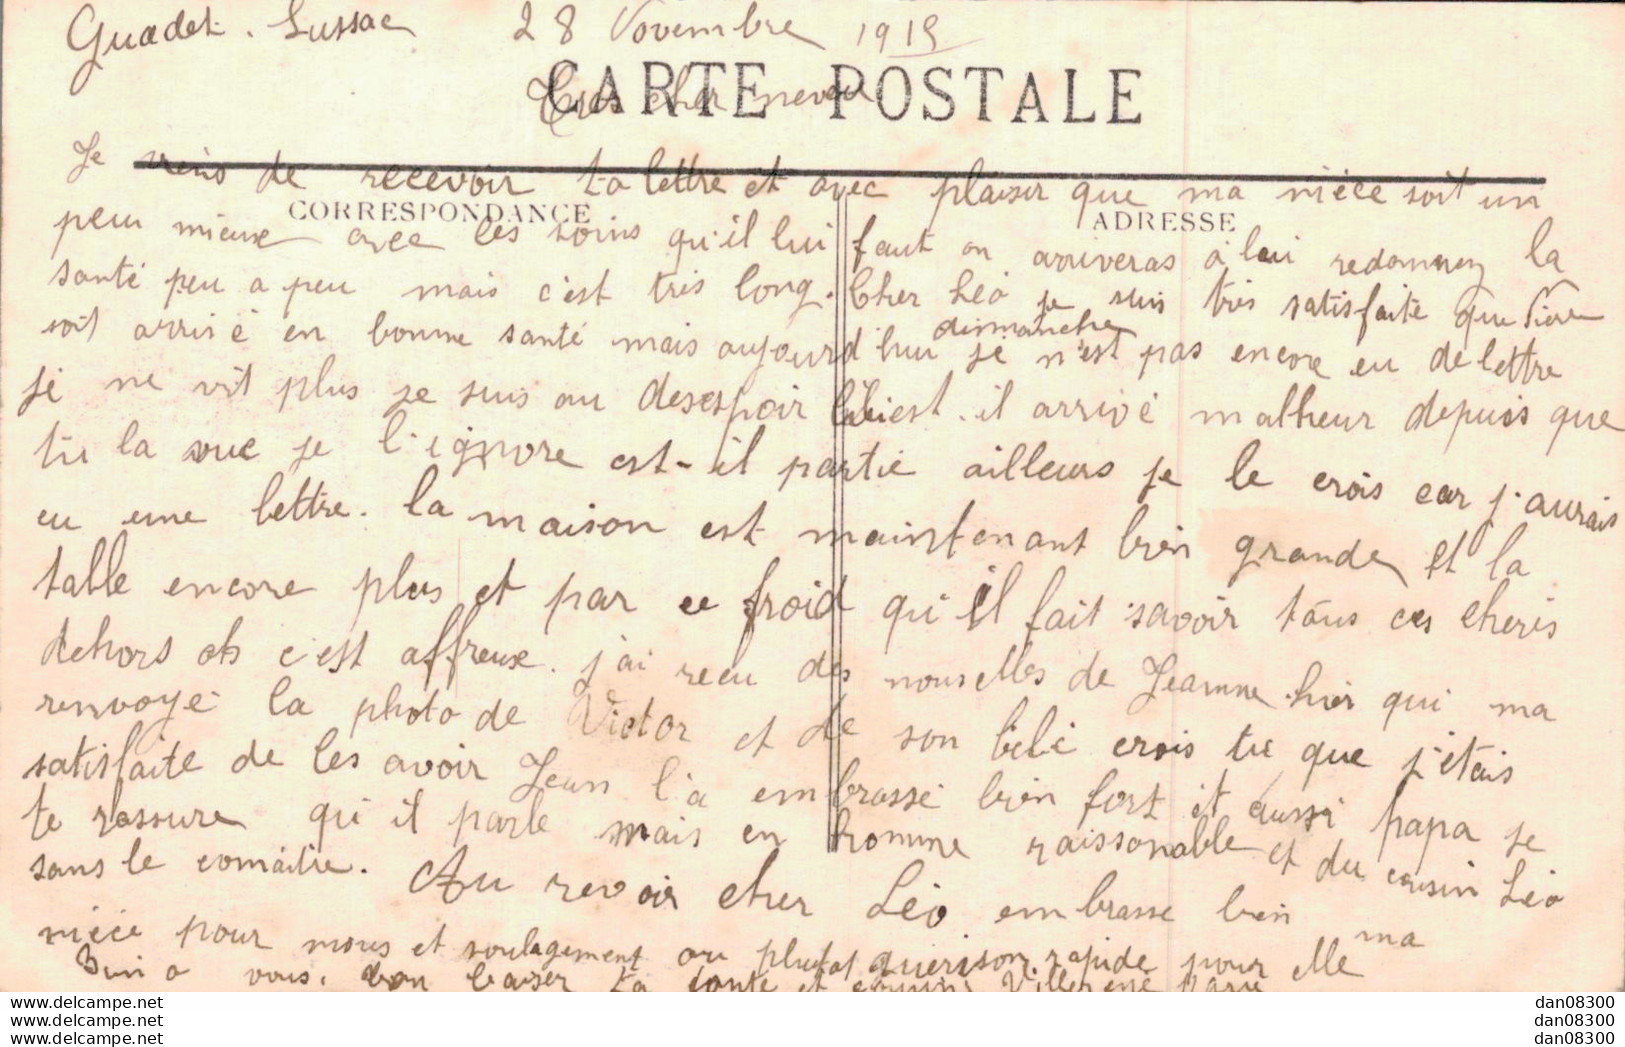 Guadet. Lussac 28 Novembre 1915
CARTE POSTALE
Très cher neveu
Je viens de recevoir ta lettre et avec plaisir que ma nièce soit un
CORRESPONDANCE ADRESSE
peu mieux avec les soins qu'il lui faut on arriveras à lui redonner la
santé peu a peu mais c'est très long. Cher Léo je suis très satisfaite que
soit arrivé en bonne santé mais aujourd'hui dimanche je n'est pas encore eu de lettre
je ne vit plus je suis au desespoir lui est-il arrivé malheur depuis que
tu la vue je l'ignore est-il partie ailleurs je le crois car j'aurais
eu une lettre. la maison est maintenant bien grande et la
table encore plus et par ce froid qu'il fait savoir tous ces cheris
dehors oh c'est affreux. j'ai recu des nouvelles de Jeanne hier qui ma
renvoyé la photo de Victor et de son bébé crois tu que j'étais
satisfaite de les avoir Jean l'a embrassé bien fort et aussi papa je
te rassure qu'il parle mais en homme raissonable et du cousin Léo
sans le connaître. Au revoir cher Léo embrasse bien ma
nièce pour nous et soulagement ou plutot guerison rapide pour elle
Bien a vous. bon baiser ta tante et cousine
dan08300
dan08300
dan08300